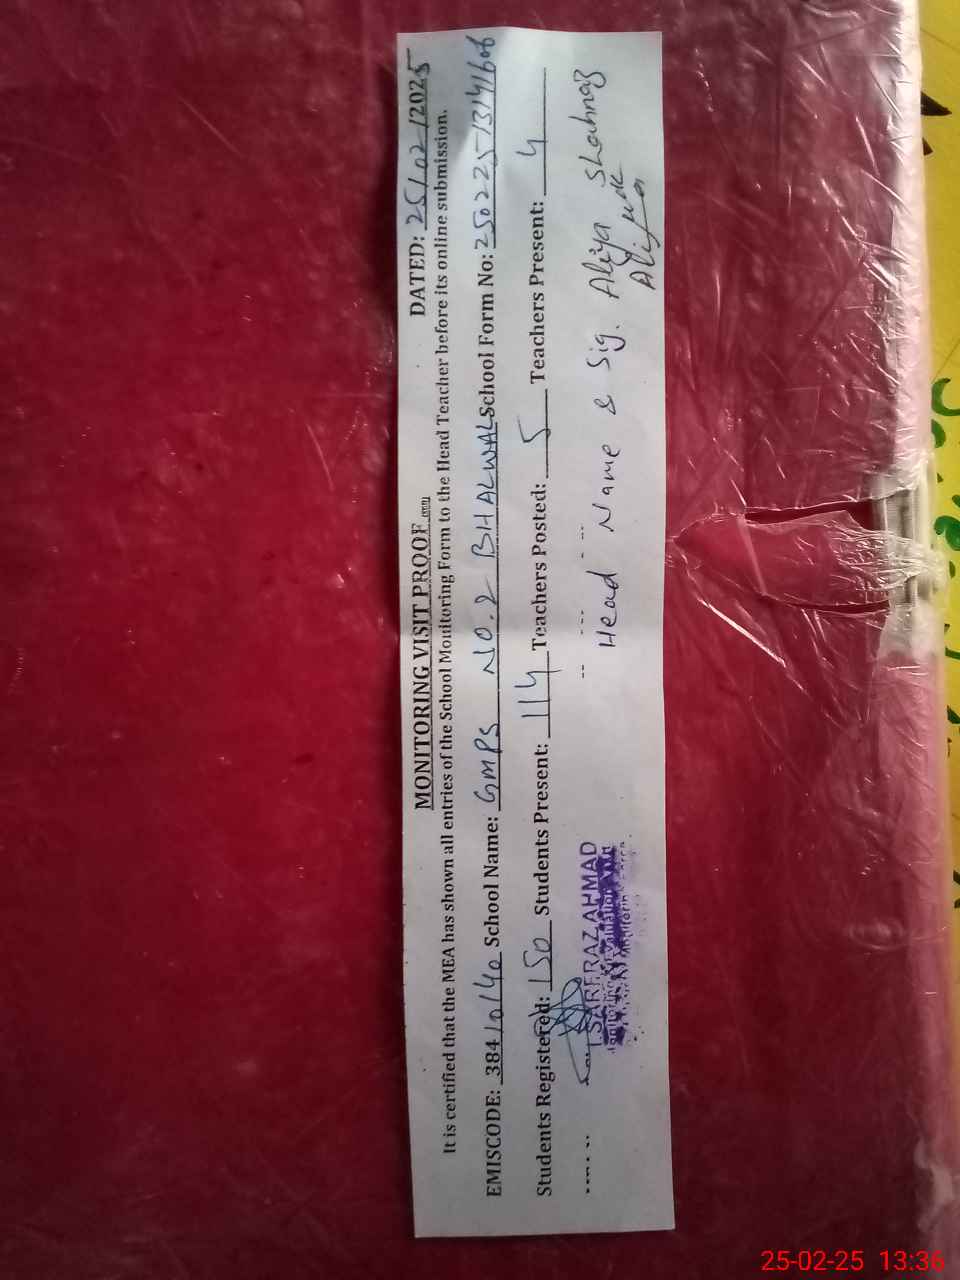 MONITORING VISIT PROOF
DATED: 25/02/2025
It is certified that the MEA has shown all entries of the School Monitoring Form to the Head Teacher before its online submission.
EMISCODE: 38410140 School Name: GMPS NO.2 BHALWAL School Form No: 25022513141606
Students Registered: 150 Students Present: 114 Teachers Posted: 5 Teachers Present: 4
Head Name & Sig. Aliya Shahnaz
SARFRAZ AHMAD
25-02-25 13:36